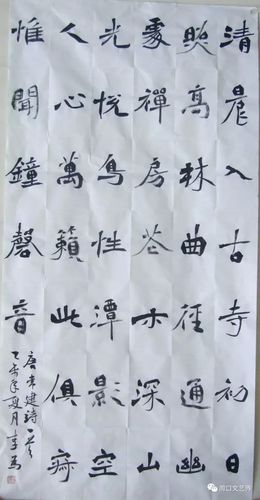 清晨入古寺初日
照高林曲徑通幽
處禪房花木深山
光悅鳥性潭影空
人心萬籟此俱寂
惟聞鐘磬音
唐常建詩一首
乙未年夏月李
周口文艺界